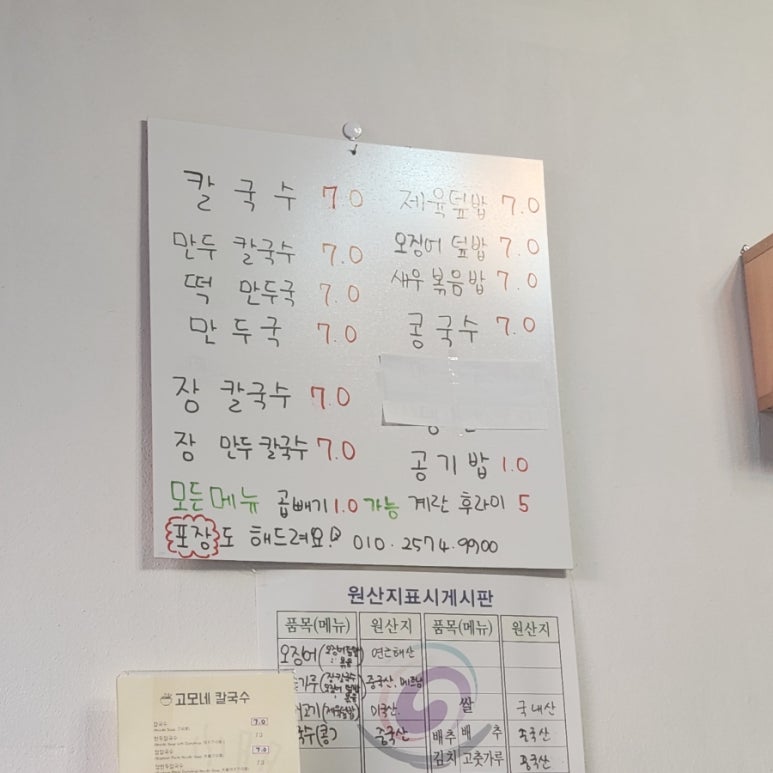 칼국수 7.0
만두 칼국수 7.0
떡 만두국 7.0
만두국 7.0
장 칼국수 7.0
장 만두칼국수 7.0
제육덮밥 7.0
오징어 덮밥 7.0
새우볶음밥 7.0
콩국수 7.0
공기밥 1.0
모든메뉴 곱빼기 1.0 가능 계란 후라이 5
포장도 해드려요! 010.2574.9900
원산지표시게시판
품목(메뉴) 원산지 품목(메뉴) 원산지
오징어 연근해산
중국산, 베트남
미국산. 쌀 국내산
(콩) 중국산 배추 배추
김치 고춧가루 중국산
고모네 칼국수
칼국수 7.0